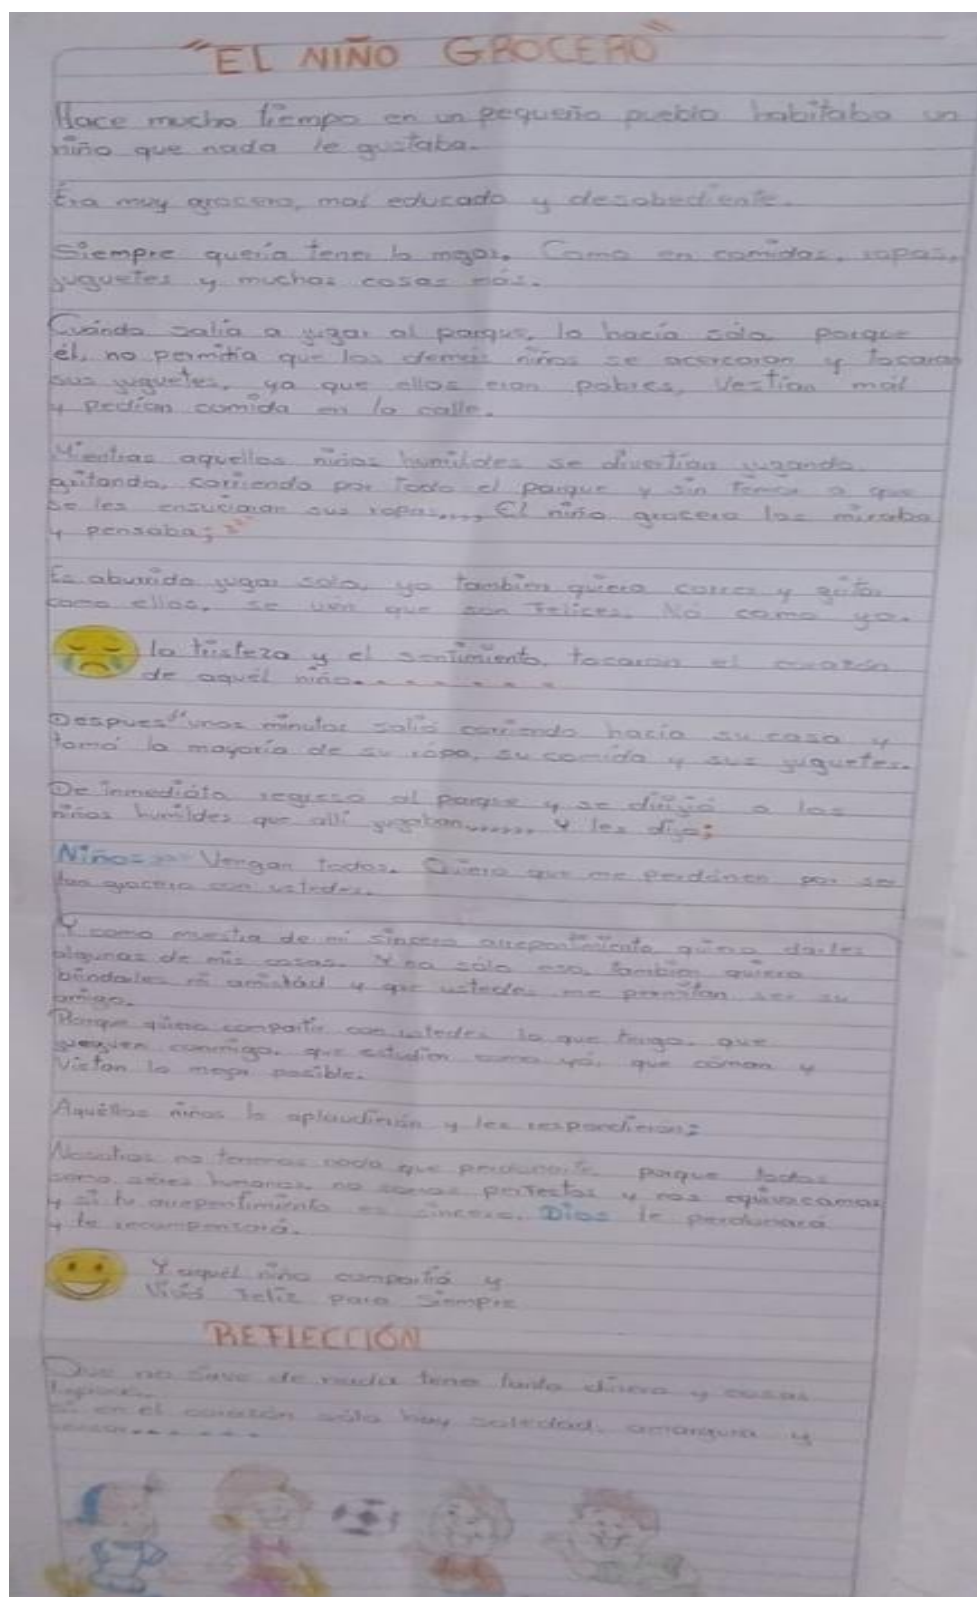 "EL NIÑO GROCERO"
Hace mucho tiempo en un pequeño pueblo habitaba un
niño que nada le gustaba.
Era muy grocero, mal educado y desobediente.
Siempre quería tener lo mejor. Como en comidas, ropas,
juguetes y muchas cosas más.
Cuándo salía a jugar al parque, lo hacía sólo, porque
él, no permitía que los demás niños se acercaran y tocaran
sus juguetes, ya que ellos eran pobres, Vestían mál
y pedían comida en la calle.
Mientras aquellos niños humildes se divertían jugando,
gritando, corriendo por todo el parque y sin temor a que
se les ensuciaran sus ropas.... El niño grocero los miraba
y pensaba;
Es aburrido jugar solo, yo tambien quiero correr y gritar
como ellos, se ven que son Felices. Nó como yo.
la tristeza y el sentimiento, tocaron el corazón
de aquél niño........
Despues unos minutos salió corriendo hacía su casa y
tomó la mayoría de su rópa, su comida y sus juguetes.
De inmediáto regreso al parque y se dirijió a los
niños humildes que allí jugaban....... Y les dijo;
Niño: Vengan todos. Quiero que me perdónen por ser
tan grocero con ustedes.
Y como muestra de mi sincero arrepentimiento quiero darles
algunas de mis cosas. Y no sólo eso, tambien quiero
bindarles mi amistád y que ustedes me permitan ser su
amigo.
Porque quiero compartir con ustedes lo que tengo, que
jueguen conmigo, que estudien como yó, que cóman y
Vistan lo mejor posible.
Aquéllos niños lo aplaudierón y les respondieron;
Nosotros no tenemos nada que perdonarte, porque todos
somos séres humanos, no somos perfectos y nos equivocamos
y si tu arrepentimiento es sincero, Dios te perdonará
y te recompensará.
Y aquél niño compartió y
Vivió Feliz para Siempre
REFLECCIÓN
Que no save de nada tener tanto dinero y cosas
si en el corazón sólo hay soledad, amargura y